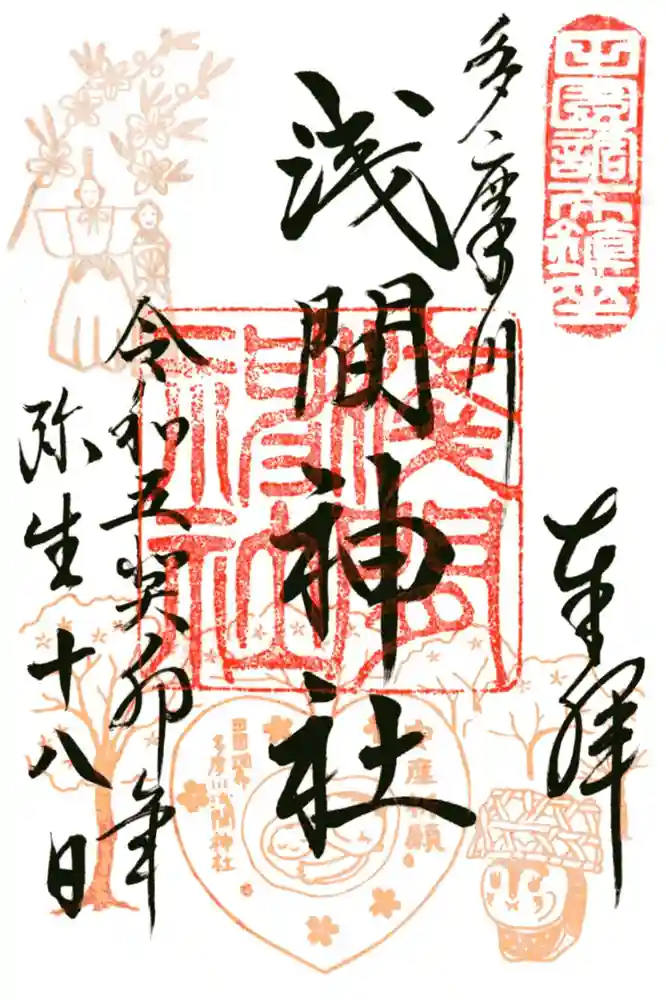 田園調布鎮座
奉拝
多摩川
浅間神社
令和五癸卯年
弥生十八日
安産祈願
田園調布
多摩川浅間神社